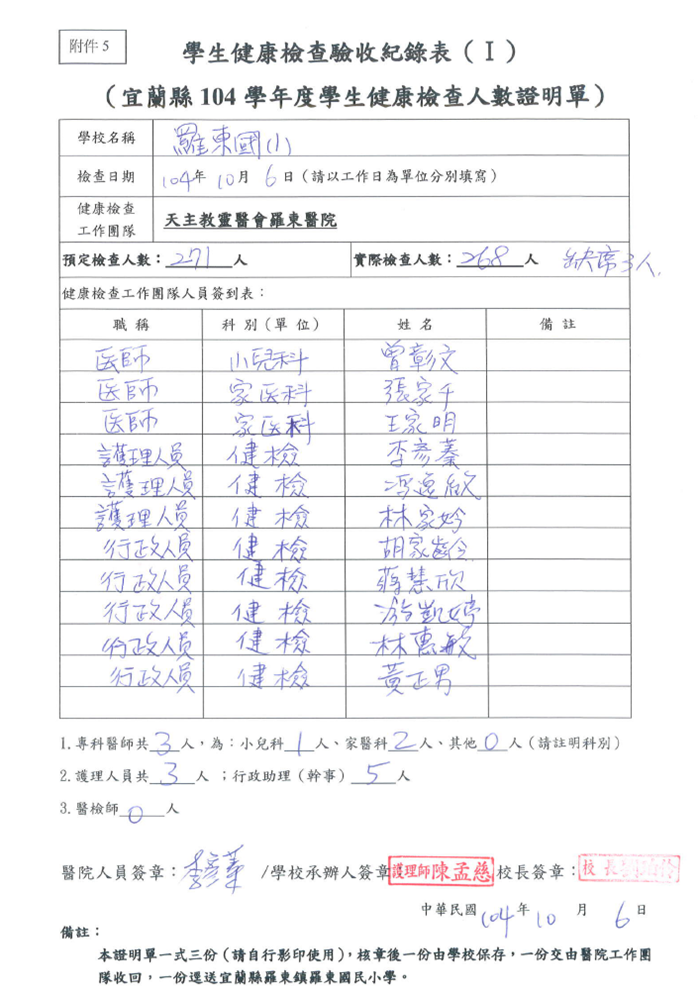 附件 5
學生健康檢查驗收紀錄表（I）
（宜蘭縣 104 學年度學生健康檢查人數證明單）
學校名稱 羅東國小
檢查日期 104年 10月 6日（請以工作日為單位分別填寫）
健康檢查
工作團隊 天主教靈醫會羅東醫院
預定檢查人數：271人 實際檢查人數：268人 缺席3人.
健康檢查工作團隊人員簽到表：
職 稱 科 別（單 位） 姓 名 備 註
医師 小兒科 曾彰文
医師 家医科 張家千
医師 家医科 王家明
護理人員 健檢 李彥蓁
護理人員 健檢 馮逸欣
護理人員 健檢 林家妗
行政人員 健檢 胡家齡
行政人員 健檢 蔣慧欣
行政人員 健檢 游凱婷
行政人員 健檢 林惠敏
行政人員 健檢 黃正男
1.專科醫師共3人，為：小兒科1人、家醫科2人、其他0人（請註明科別）
2.護理人員共3人 ；行政助理（幹事）5人
3.醫檢師0人
醫院人員簽章：李彥蓁 /學校承辦人簽章護理師陳孟慈校長簽章：校長
中華民國 104 年 10 月 6 日
備註：
本證明單一式三份（請自行影印使用），核章後一份由學校保存，一份交由醫院工作團
隊收回，一份逕送宜蘭縣羅東鎮羅東國民小學。